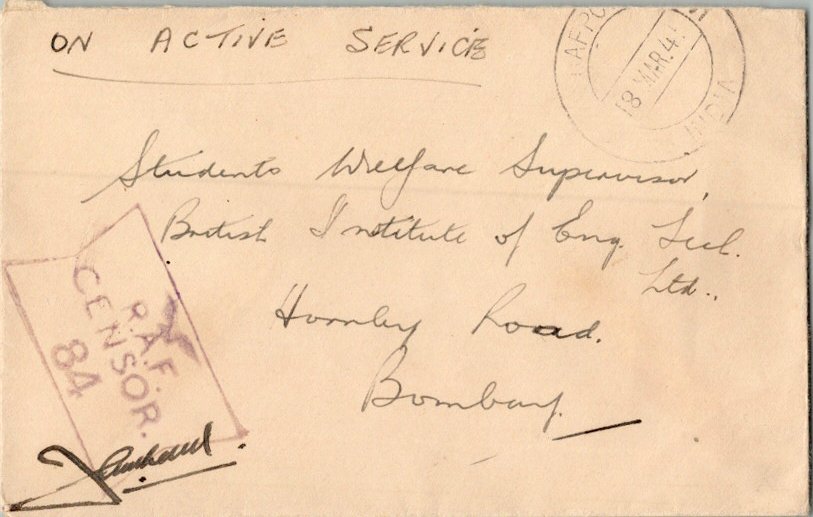 ON ACTIVE SERVICE
18 MAR. 4
INDIA
Students Welfare Supervisor,
British Institute of Eng. Tech.
Ltd.,
Hornby Road.
Bombay.
R.A.F.
CENSOR.
84